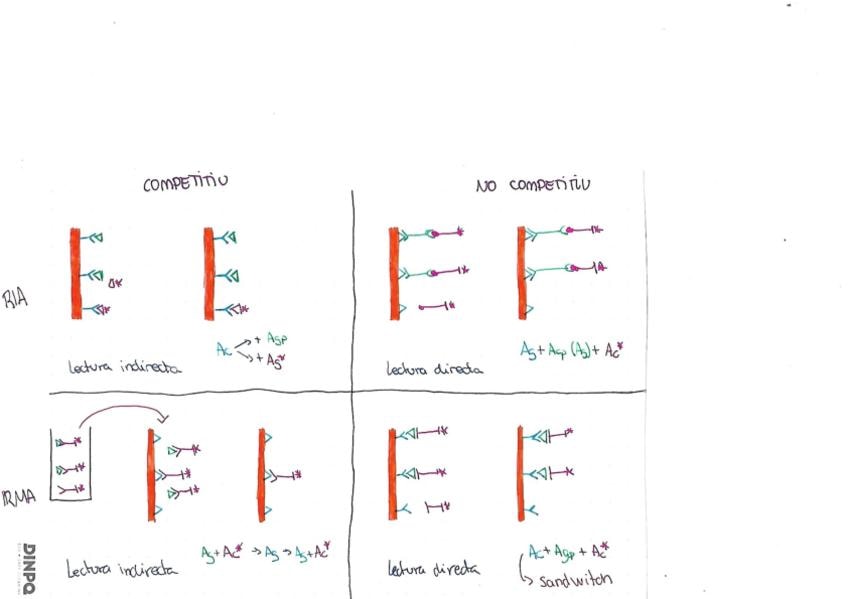 COMPETITIU
NO COMPETITIU
RIA
Ac → + Agp
→ + Ag*
Lectura indirecta
Ag + Agp (Ag) + Ac*
Lectura directa
IRMA
Ag + Ac* → Ag → Ag + Ac*
Lectura indirecta
Ac + Agp + Ac*
Lectura directa
↳ sandwitch
DINPQ